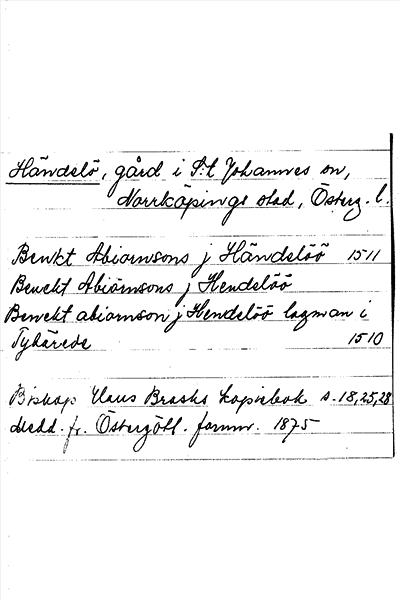 Händslö, gård i S:t Johannes sn,
Norrköpings stad, Österg. l.
Benkt Abiornsons j Händslöö 1511
Benckt Abiörnsons j Hendslöö
Benckt abiornson j Hendslöö lagman i
Tyhärede 1510
Biskop Hans Brasks kopiebok s. 18, 25, 28
Medd. fr. Östergötl. fornmr. 1875